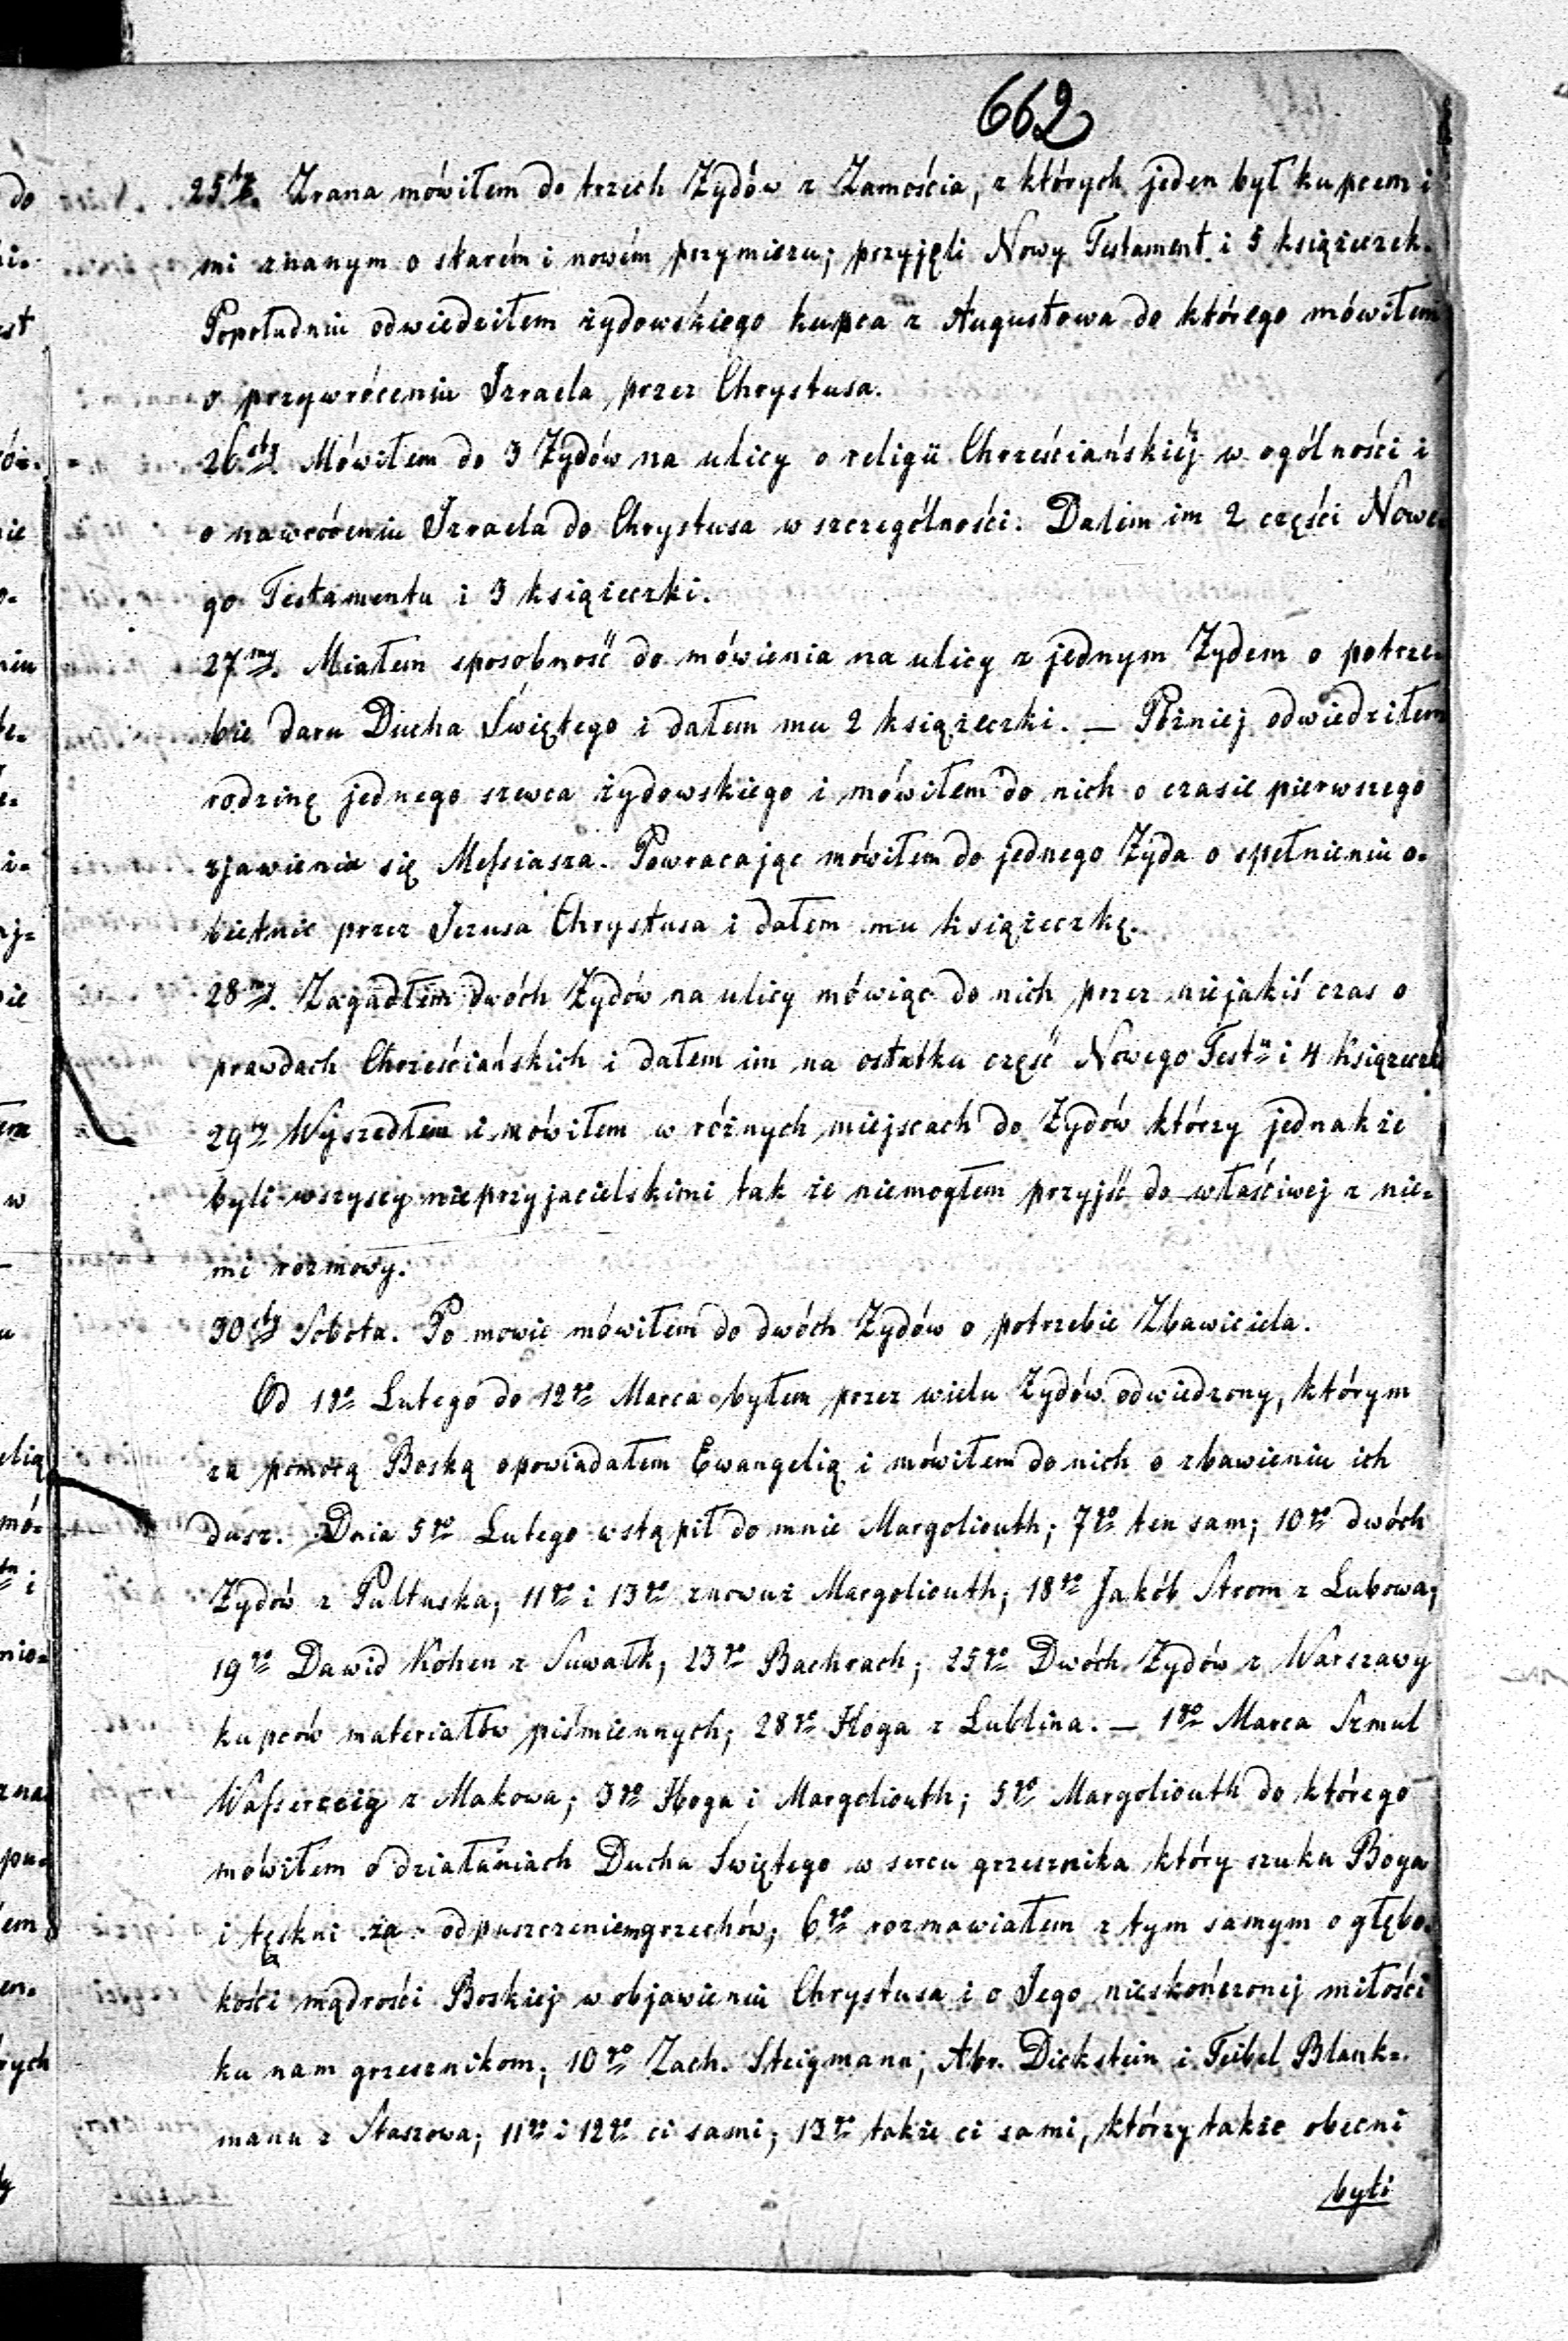 662
25ty. Zrana mówiłem do trzech Żydów z Zamościa, z których jeden był kupcem i
mi znanym o starém i nowém przymierzu; przyjęli Nowy Testament i 5 książeczek.
Popołudniu odwiedziłem żydowskiego kupca z Augustowa do którego mówiłem
o przywróceniu Izraela przez Chrystusa.
26sty. Mówiłem do 3 Żydów na ulicy o religii Chrześciańskiéj w ogólności i
o nawróceniu Izraela do Chrystusa w szczególności. Dałem im 2 części Nowe-
go Testamentu i 3 książeczki.
27my. Miałem sposobność do mówienia na ulicy z jednym Żydem o potrze-
bie daru Ducha Świętego i dałem mu 2 książeczki. — Później odwiedziłem
rodzinę jednego szewca żydowskiego i mówiłem do nich o czasie pierwszego
zjawienia się Messiasza. Powracając mówiłem do jednego Żyda o spełnieniu o-
bietnic przez Jezusa Chrystusa i dałem mu książeczkę.
28my. Zagadłem dwóch Żydów na ulicy mówiąc do nich przez niejakiś czas o
prawdach Chrześciańskich i dałem im na ostatku część Nowego Testu i 4 książeczki
29ty Wyszedłem i mówiłem w różnych miejscach do Żydów którzy jednakże
byli wszyscy nieprzyjacielskimi tak że niemogłem przyjść do właściwej z nie-
mi rozmowy.
30sty Sobota. Po mowie mówiłem do dwóch Żydów o potrzebie Zbawiciela.
Od 1go Lutego do 12go Marca byłem przez wielu Żydów odwiedzony, którym
za pomocą Boską opowiadałem Ewangelią i mówiłem do nich o zbawieniu ich
dusz. Dnia 5go Lutego wstąpił do mnie Margoliouth; 7go ten sam; 10go dwóch
Żydów z Pułtuska; 11go i 13go znowuż Margoliouth; 18go Jakób Strom z Lubowa;
19go Dawid Kohen z Suwałk; 23go Bachrach; 25go Dwóch Żydów z Warszawy
kupców materiałów piśmiennych; 28go Hoga z Lublina. — 1go Marca Szmul
Wasserzeig z Makowa; 3go Hoga i Margoliouth; 5go Margoliouth do którego
mówiłem o działaniach Ducha Świętego w sercu grzesznika który szuka Boga
i tęskni za odpuszczeniem grzechów; 6go rozmawiałem z tym samym o głębo-
kości mądrości Boskiej w objawieniu Chrystusa i o Jego nieskończonej miłości
ku nam grzesznikom; 10go Zach. Steigmann; Abr. Dickstein i Teibel Blank-
mann z Staszowa; 11go i 12go ci sami; 13go także ci sami, którzy także obecni
byli